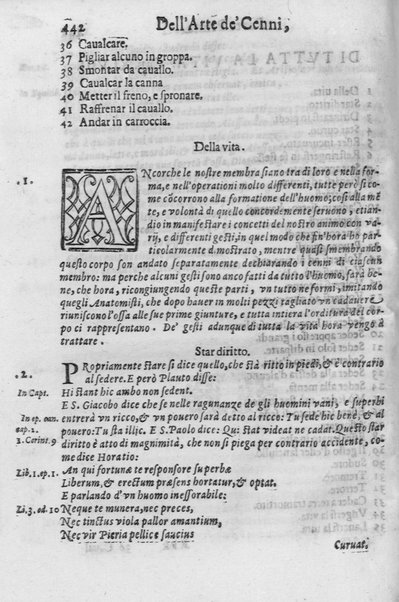 442
Dell'Arte de' Cenni,
36 Caualcare.
37 Pigliar alcuno in groppa.
38 Smontar da cauallo.
39 Caualcar la canna
40 Metter il freno, e spronare.
41 Raffrenar il cauallo.
42 Andar in carroccia.
Della vita.
.1.
ANcorche le nostre membra siano tra di loro e nella for-
ma, e nell'operationi molto differenti, tutte però sì co-
me cōcorrono alla formatione dell'huomo; così alla mẽ
te, e volontà di quello concordemente seruono, etian-
dio in manifestare i concetti del nostro animo con va-
rij, e differenti gesti, in quel modo che fin'hora hò par-
ticolarmente dimostrato, mentre quasi smembrando
questo corpo son andato separatamente dechiarando i cenni di ciascun
membro: ma perche alcuni gesti sono anco fatti da tutto l'huomo, sarà be-
ne, che hora, ricongiungendo queste parti, vn tutto ne formi, imitando
quegli Anatomisti, che dopo hauer in molti pezzi tagliato vn cadauere
riuniscono l'ossa alle sue prime giunture, e tutta intiera l'orditura del cor-
po ci rappresentano. De' gesti adunque di tutta la vita hora vengo à
trattare.
Star diritto.
.2.
PRopriamente stare si dice quello, che stà ritto in piedi, & è contrario
al sedere. E però Plauto disse:
In Capt.
Hi stant hic ambo non sedent.
E S. Giacobo dice che se nelle ragunanze de gli huomini vani, e superbi
In ep. can.
entrerà vn ricco, & vn pouero sarà detto al ricco: Tu sede hic benè, & al
cap.2.
pouero: Tu sta illic. E S. Paolo dice: Qui stat videat ne cadat. Questo star
1.Corint.9
diritto è atto di magnimità, che non si piega per contrario accidente, co-
me dice Horatio:
Lib.1.ep.1.
An qui fortunæ te responsore superbæ
Liberum, & erectum præsens hortatur, & optat.
E parlando d'vn huomo inessorabile:
Li.3.od.10
Neque te munera, nec preces,
Nec tinctus viola pallor amantium,
Nec vir Pieria pellice saucius
Curuat.